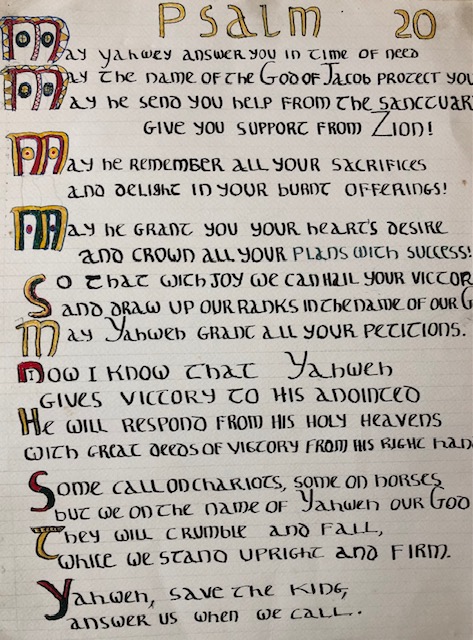 Psalm 20
May Yahwey answer you in time of need
May the name of the God of Jacob protect you
May he send you help from the sanctuar
give you support from Zion!
May he remember all your sacrifices
and delight in your burnt offerings!
May he grant you your heart's desire
and crown all your plans with success!
So that with joy we can hail your victor
and draw up our ranks in the name of our G
May Yahweh grant all your petitions.
Now I know that Yahweh
gives victory to his anointed
He will respond from his holy heavens
with great deeds of victory from his right han
Some call on chariots, some on horses
but we on the name of Yahweh our God
They will crumble and fall,
while we stand upright and firm.
Yahweh, save the king,
answer us when we call..